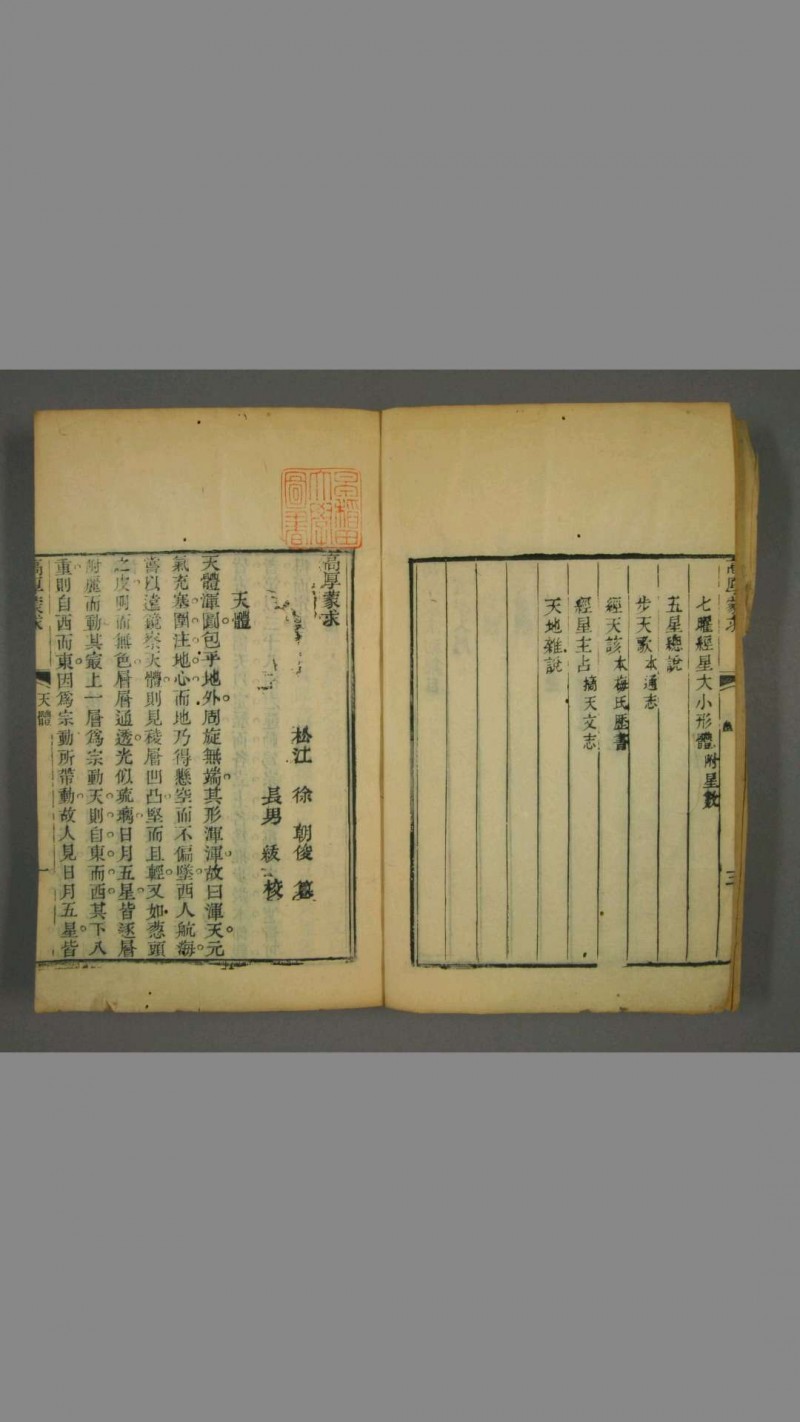 高厚蒙求
三
七曜經星大小形體附星數
五星總說
步天歌本通志
經天該本梅氏歷書
經星主占摘天文志
天地雜說
早稻田大學圖書
高厚蒙求
松江 徐朝俊 纂
長男 紱 校
天體
天體渾圓包乎地外周旋無端其形渾渾故曰渾天元
氣充塞圍注地心而地乃得懸空而不偏墜西人航海
者以遠鏡察天體則見稜層凹凸堅而且輕又如葱頭
之皮明而無色層層通透光似琉璃日月五星皆逐層
附麗而動其最上一層爲宗動天則自東而西其下八
重則自西而東因爲宗動所帶動故人見日月五星皆
高厚蒙求
天體
一